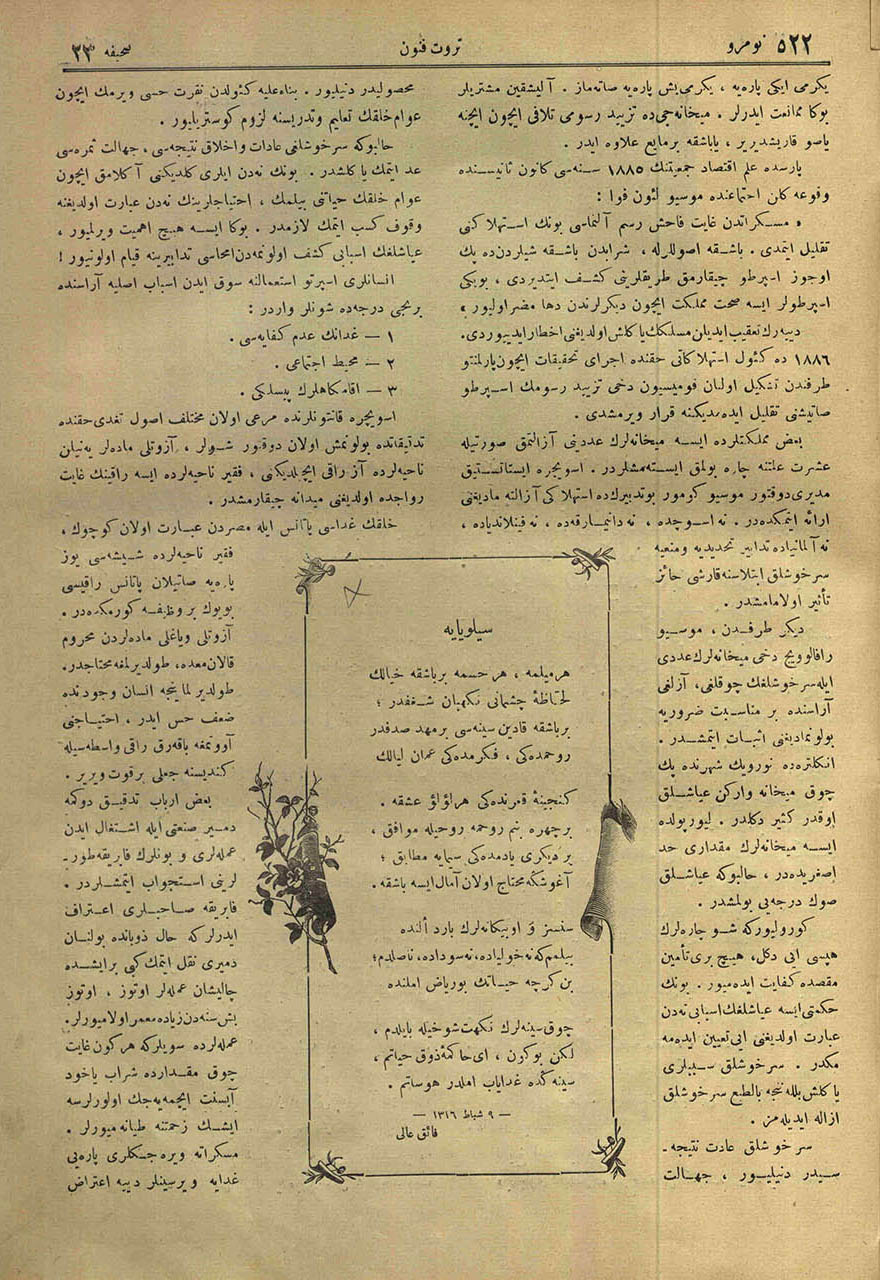 نومرو ٥٢٢
ثروت فنون
صحیفه ٢٣
یكرمی ایكی پاره‌یه ، یكرمی‌بش پاره‌یه صاتماز . آلیشقین مشتریلر
بوكا ممانعت ایدرلر . میخانه‌جی‌ده تزیید رسومی تلافی ایچون ایچنه
یاصو قاریشدیریر ، یاباشقه برمایع علاوه ایدر .
پارسده علم اقتصاد جمعیتنك ١٨٨٥ سنه‌سی كانون ثانیسنده
وقوعه كلن اجتماعنده موسیو لئون فوا :
« مسكراتدن غایت فاحش رسم آلنماسی بونك استهلاكنی
تقلیل ایتمدی . باشقه اصوللرله ، شرابدن باشقه شیلردن‌ده پك
اوجوز اسپرطو چیقارمق طریقلرینی كشف ایتدیردی ، بویكی
اسپرطولر ایسه صحت مملكت ایچون دیكرلرندن دها مضر اولیور »
دییه‌رك تعقیب ایدیلن مسلكك یاكلش اولدیغنی اخطار ایدیوردی.
١٨٨٦ ده كئول استهلاكاتی حقنده اجرای تحقیقات ایچون پارلمنتو
طرفندن تشكیل اولنان قومیسیون دخی تزیید رسومك اسپرطو
صاتیشنی تقلیل ایده‌مدیكنه قرار ویرمشدی .
بعض مملكتلرده ایسه میخانه‌لرك عددینی آزالتمق صورتیله
عشرت علتنه چاره بولمق ایسته‌مشلردر . اسویچره ایستاتستیق
مدیری دوقتور موسیو كومور بوتدبیرك‌ده استهلاكی آزالته مادیغنی
ارائه ایتمكده‌در . نه اسوجده ، نه دانیمارقه‌ده ، نه فینلاندیاده ،
نه آلمانیاده تدابیر تحدیدیه ومنعیه
سرخوشلق ابتلاسنه قارشی حائز
تأثیر اولامامشدر .
دیكر طرفدن ، موسیو
رافالوویچ دخی میخانه‌لرك عددی
ایله سرخوشلغك چوقلغی، آزلغی
آراسنده بر مناسبت ضروریه
بولونمادیغنی اثبات ایتمشدر .
انكلتره‌ده نورویك شهرنده پك
چوق میخانه واركن عیاشلق
اوقدر كثیر دكلدر . لیورپولده
ایسه میخانه‌لرك مقداری حد
اصغریده‌در ، حالبوكه عیاشلق
صوك درجه‌یی بولمشدر .
كورولیوركه شو چاره‌لرك
هپسی ایی دكل، هیچ بری تأمین
مقصده كفایت ایده‌میور . بونك
حكمتی ایسه عیاشلغك اسبابی نه‌دن
عبارت اولدیغنی ایی تعیین ایده‌مه
مكدر . سرخوشلق سببلری
یاكلش بیللنجه بالطبع سرخوشلق
ازاله ایدیله‌مز .
سر خوشلق عادت نتیجه-
سیدر دنیلیور ، جهالت
محصولیدر دنیلیور . بناءعلیه كئولدن نفرت حسی ویرمك ایچون
عوام خلقك تعلیم وتدریسنه لزوم كوستریلیور .
حالبوكه سرخوشلغی عادات واخلاق نتیجه‌سی، جهالت ثمره‌سی
عد ایتمك یاكلشدر . بونك نه‌دن ایلری كلدیكنی آكلامق ایچون
عوام خلقك حیاتنی بیلمك ، احتیاجلرینك نه‌دن عبارت اولدیغنه
وقوف كسب ایتمك لازمدر . بوكا ایسه هیچ اهمیت ویرلمیور ،
عیاشلغك اسبابی كشف اولونمه‌دن امحاسی تدابیرینه قیام اولونیور !
انسانلری اسپرتو استعمالنه سوق ایدن اسباب اصلیه آراسنده
برنجی درجه‌ده شونلر واردر :
١ — غدانك عدم كفایه‌سی .
٢ — محیط اجتماعی .
٣ — اقامتكاهلرك پیسلكی .
اسویچره قانتونلرنده مرعی اولان مختلف اصول تغدی حقنده
تدقیقاتده بولونمش اولان دوقتور شولر ، آزوتلی ماده‌لر یه‌نیلن
ناحیه‌لرده آز راقی ایچیلدیكنی ، فقیر ناحیه‌لرده ایسه راقینك غایت
رواجده اولدیغنی میدانه چیقارمشدر .
خلقك غداسی پاتاتس ایله مصردن عبارت اولان كوچوك ،
فقیر ناحیه‌لرده شیشه‌سی یوز
پاره‌یه صاتیلان پاتاتس راقیسی
بویوك بر وظیفه كورمكده‌در .
آزوتلی ویاغلی ماده‌لردن محروم
قالان معده، طولدیرلمغه محتاجدر.
طولدیرلماینجه انسان وجودنده
ضعف حس ایدر ، احتیاجنی
آووتمغه باقه‌رق راقی واسطه‌سیله
كندیسنه جعلی برقوت ویریر .
بعض ارباب تدقیق دوكمه
دمیر صنعتی ایله اشتغال ایدن
عمله‌لری و بونلرك فابریقه‌طور-
لرینی استجواب ایتمشلردر .
فابریقه صاحبلری اعتراف
ایدرلركه حال ذوبانده بولنان
دمیری نقل ایتمك كبی برایشده
چالیشان عمله‌لر اوتوز ، اوتوز
بش سنه‌دن زیاده معمر اولامیورلر.
عمله‌لرده سویلركه هركون غایت
چوق مقدارده شراب یاخود
آبسنت ایچمه‌یه‌جك اولورلرسه
ایشك زحمتنه طیانه‌میورلر .
مسكراته ویره‌جكلری پاره‌یی
غدایه ویرسینلر دییه اعتراض
سیلویایه
هرمیلمه ، هر حسمه برباشقه خیالك
لحاظهٔ چشمانی نكهبان شغفدر ؛
برباشقه قادین سینه‌سی برمهد صدفدر
روحمده‌كی ، فكرمده‌كی عمان لیالك
كنجینهٔ قعرنده‌كی هرلؤلؤ عشقه .
برچهره بنم روحمه روحیله موافق ،
بر دیكری یادمده‌كی سمایه مطابق ؛
آغوشكه محتاج اولان آمال ایسه باشقه.
سنسز او بیكانه‌لرك بارد ألنده
بیلمم كه نه خولیاده، نه سوداده، ناصلدم؛
بن كرچه حیاتك بوریاض املنده
چوق سینه‌لرك نكهت شوخیله بایلدم ،
لكن بوكون ، ای حاكمهٔ ذوق حیاتم ،
سینه‌كده غدایاب املدر هوساتم .
— ٩ شباط ١٣١٦ —
فائق عالی